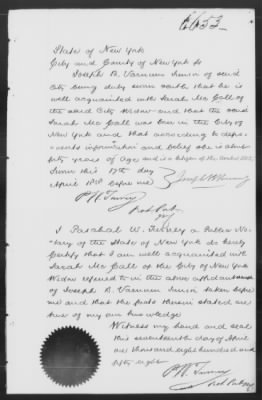 6653
State of New York
City and County of New York ss
Joseph B. Varnum Junior of said
City being duly sworn saith that he is
well acquainted with Sarah Mc Call of
the said City Widow and that the said
Sarah Mc Call was born in the City of
New York and that according to depo-
nents information and belief she is about
fifty years of age and is a citizen of the United States
Sworn this 17th day
April 1858 before me
P. W. Turney
Not. Pub.
N.Y.
I Paschal W. Turney a Public No-
tary of the State of New York do hereby
Certify that I am well acquainted with
Sarah Mc Call of the City of New York
Widow referred to in the above affidavit
of Joseph B. Varnum Junior taken before
me and that the facts therein stated are
true of my own knowledge
Witness my hand and seal
this seventeenth day of April
one thousand eight hundred and
fifty eight
P. W. Turney
Not. Pub.